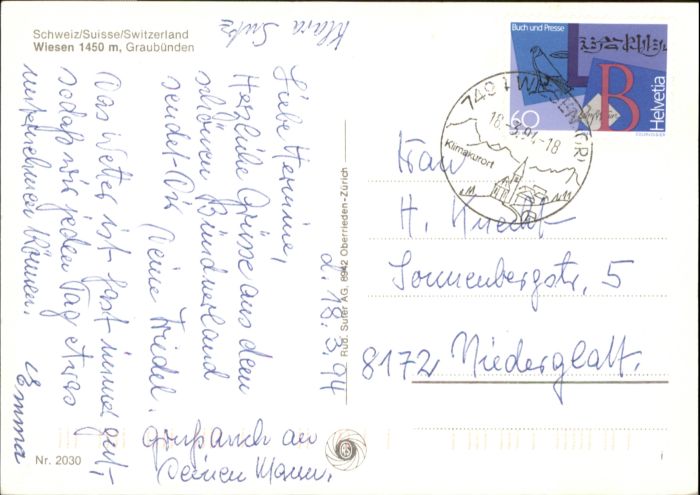 Schweiz/Suisse/Switzerland
Wiesen 1450 m, Graubünden
Klara Sutz
d. 18.3.94
Liebe Hermine,
Herzliche Grüsse aus dem
schönen Bündnerland
sendet Dir Deine Friedel.
Das Wetter ist fast immer gut,
sodaß wir jeden Tag etwas
unternehmen können. Emma
Gruß auch an
Deinen Mann.
Nr. 2030
Rud. Suter AG, 8942 Oberrieden-Zürich
Buch und Presse
B
60
Helvetia
18.3.94-18
Klimakurort
Frau
H. Knecht
Sonnenbergstr. 5
8172 Niederglatt.